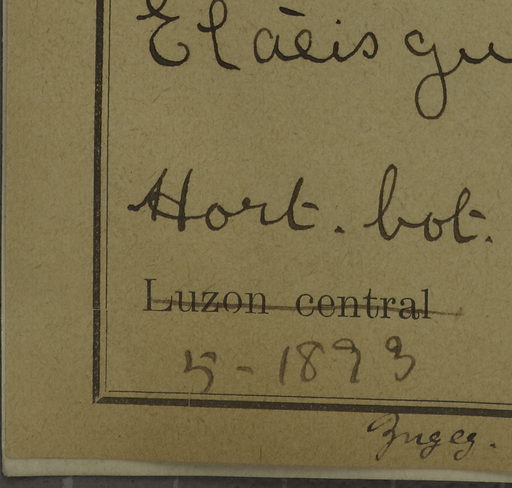 Elaeis gu
Hort. bot.
Luzon central
5-1893
Zugeg.